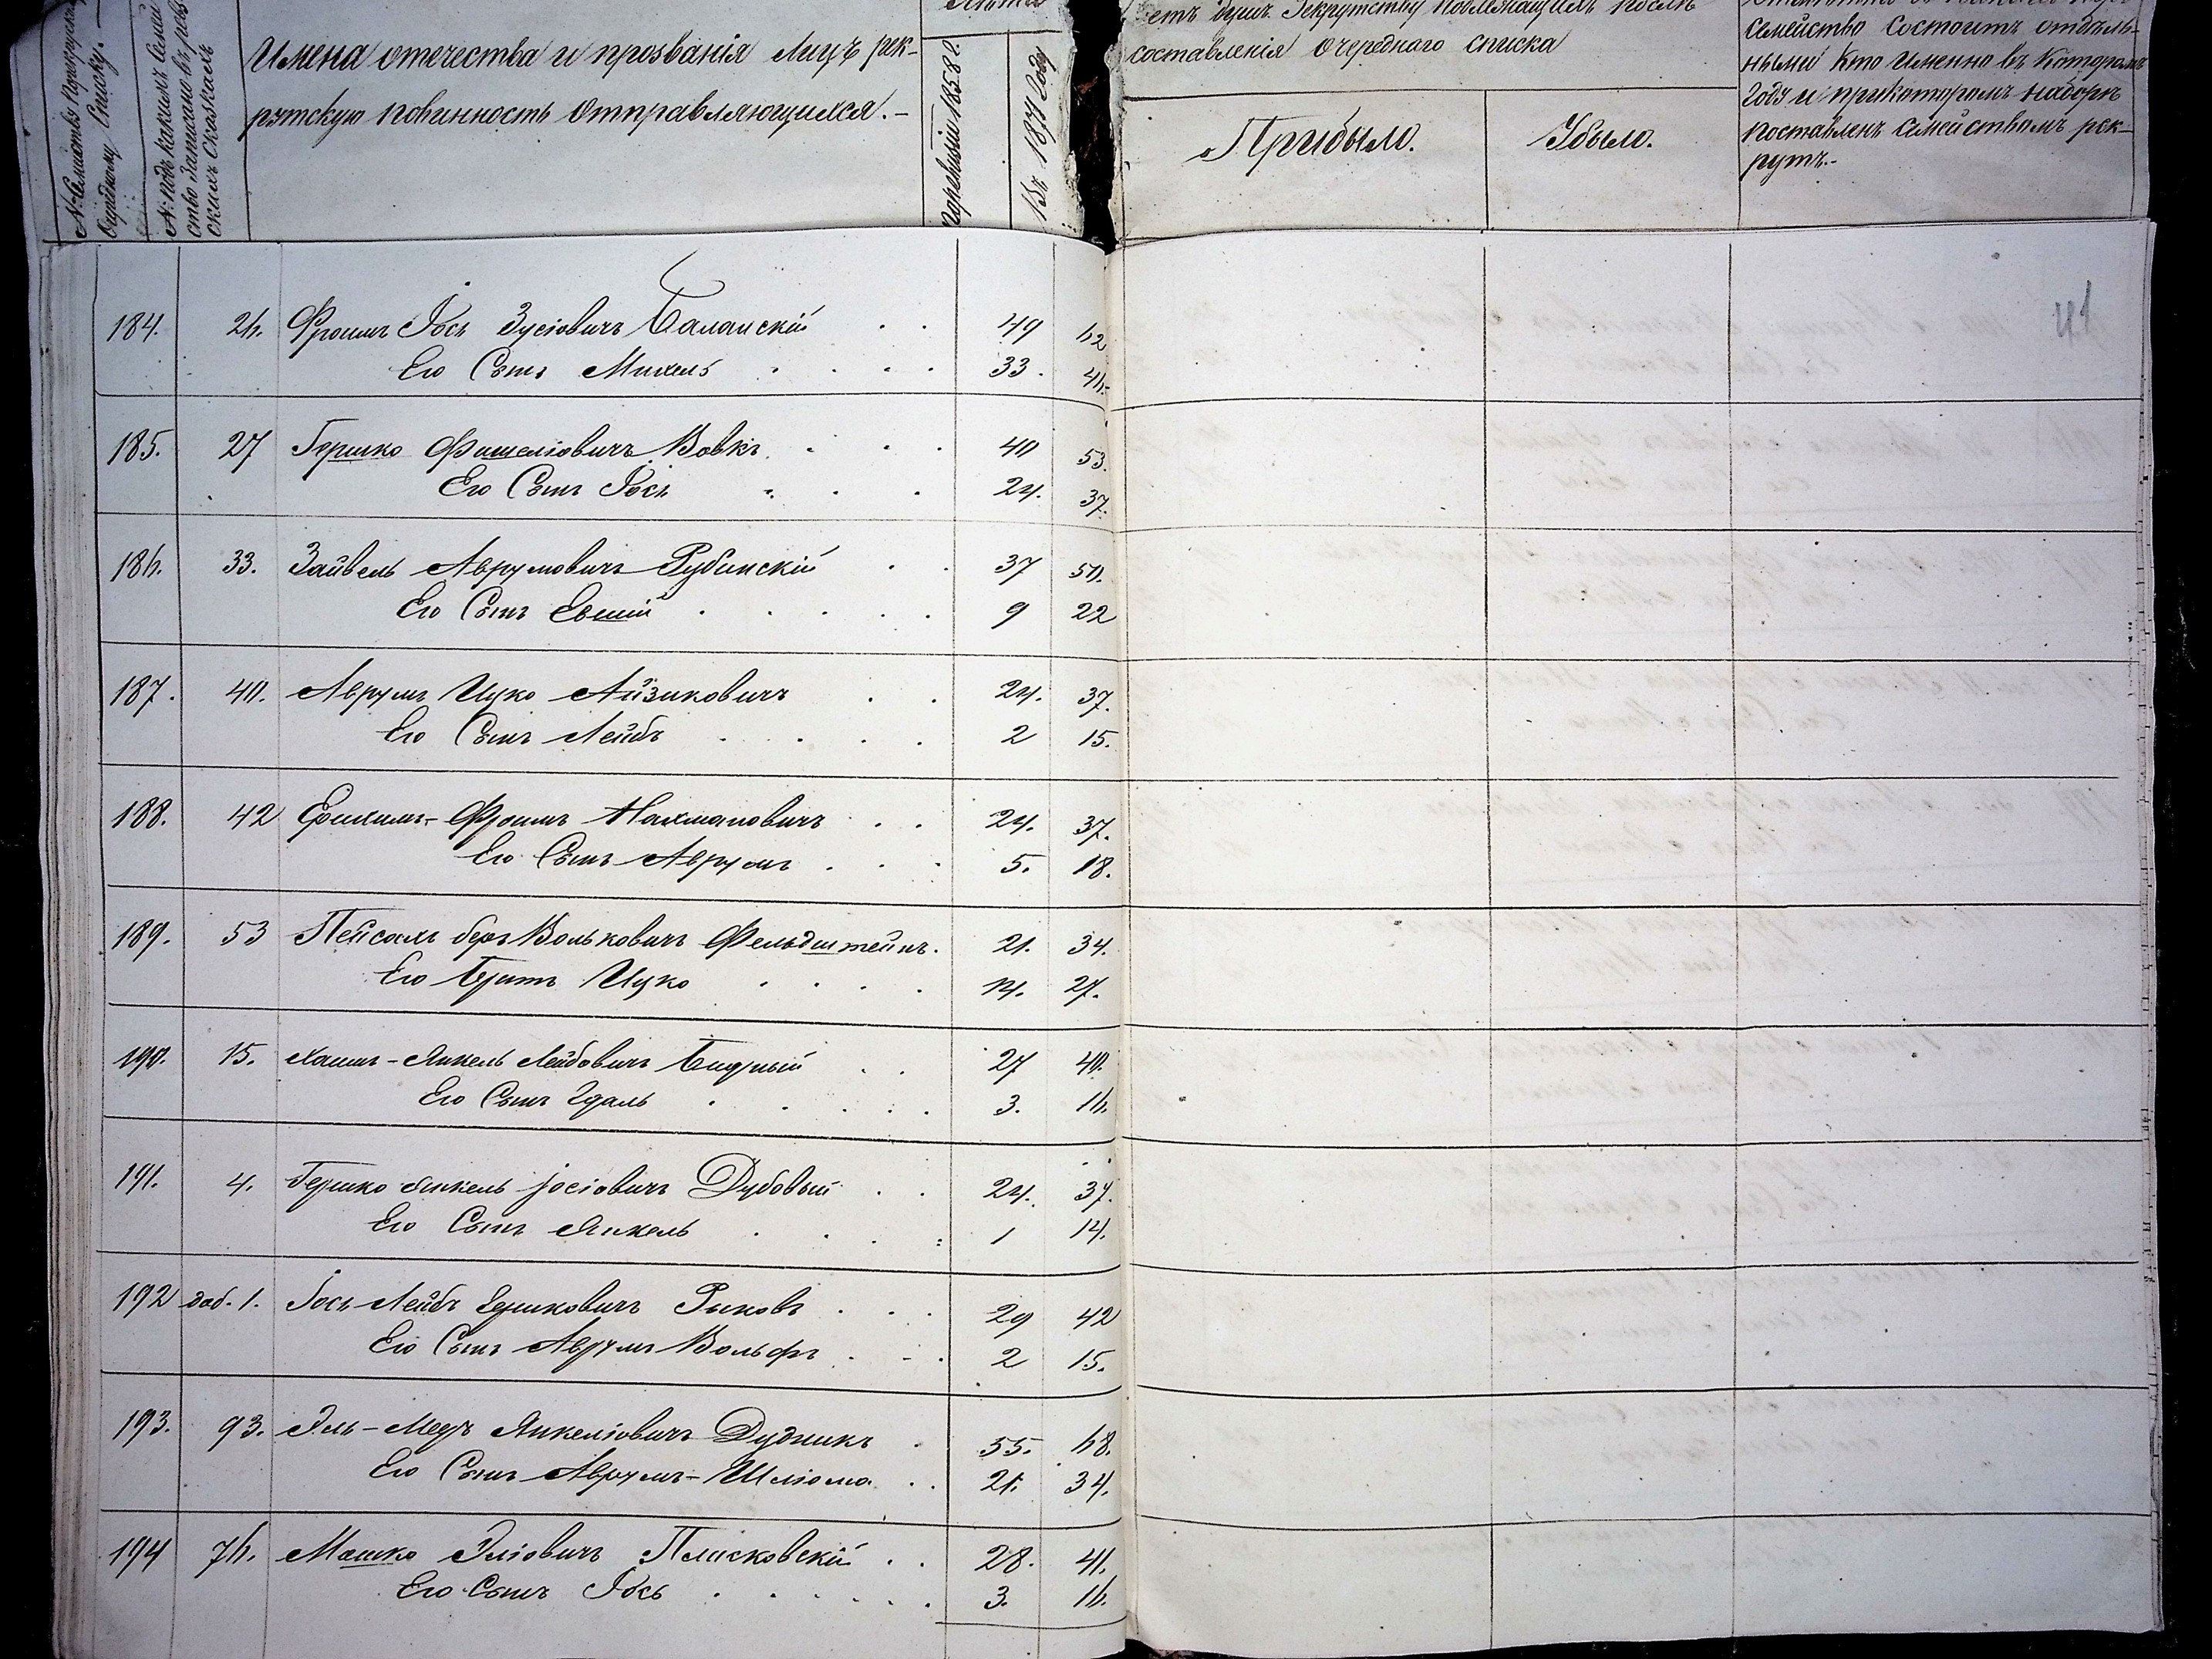 № Семейства по рекрутскому
очередному Списку.
№ подъ какимъ Семей-
ство записано въ реви-
скихъ Сказкахъ
Имена отечества и прозванія лицъ рек-
рутскую повинность отправляющихся.-
Лѣта
По ревизіи 1858 г.
Въ 1871 году
етъ душъ рекрутству подлежащихъ послѣ
составленія очереднаго списка
Прибыло.
Убыло.
Семейство состоитъ отдѣль-
нымъ кто именно въ которомъ
году и при которомъ наборѣ
поставленъ семействомъ рек-
рутъ.-
41
184. 26. Фроимъ Іось Зусіовичъ Баланскій 49 62
Его Сынъ Михель 33. 46.
185. 27 Гершко Фишеліовичъ Вовкъ 40 53.
Его Сынъ Іось 24. 37.
186. 33. Зайвель Аврумовичъ Рубинскій 37 50.
Его Сынъ Евшій 9 22
187. 40. Аврумъ Ицко Айзиковичъ 24. 37.
Его Сынъ Лейбъ 2 15.
188. 42 Фроимъ Нахмановичъ 24. 37.
Его Сынъ Аврумъ 5. 18.
189. 53 Пейсахъ беръ Вольковичъ Фельдштейнъ. 21. 34.
Его Братъ Ицко 14. 27.
190. 15. Хаимъ-Янкель Лейбовичъ Бидный 27 40.
Его Сынъ Гдаль 3. 16.
191. 4. Гершко Янкель Іосіовичъ Дубовый 24. 37.
Его Сынъ Янкель 1 14.
192 доб. 1. Іось Лейбъ Гершковичъ Рыковъ 29 42
Его Сынъ Аврумъ Вольфъ 2 15.
193. 93. Эль-Мееръ Янкеліовичъ Дудникъ 55. 68.
Его Сынъ Аврумъ-Шліома 21. 34.
194 76. Мошко Эліовичъ Плисковскій 28. 41.
Его Сынъ Іось 3. 16.